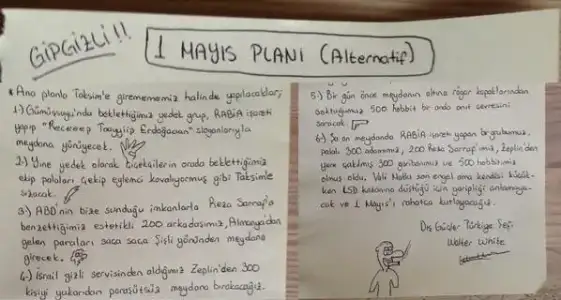 GİPGİZLİ!!
1 MAYIS PLANI (Alternatif)
* Ana planla Taksim'e girememiz halinde yapılacaklar;
1-) Gümüşsuyu'nda beklettiğimiz yedek grup, RABİA işareti
yapıp "Receeeep Taayyiip Erdoğaaan" sloganlarıyla
meydana yürüyecek.
2-) Yine yedek olarak bisetkilerin orada beklettiğimiz
ekip palaları çekip eylemci kovalıyormuş gibi Taksim'e
sızacak.
3-) ABD'nin bize sunduğu imkanlarla Reza Sarraf'a
benzettiğimiz estetikli 200 arkadaşımız, Almanya'dan
gelen paraları saça saça Şişli yönünden meydana
girecek.
4-) İsrail gizli servisinden aldığımız Zeplin'den 300
kişiyi yukarıdan paraşütsüz meydana bırakacağız.
5-) Bir gün önce meydanın altına rögar kapaklarından
soktuğumuz 500 hobbit bir anda anıt çevresini
saracak.
6-) Şu an meydanda RABİA işareti yapan bir grubumuz,
palalı 300 adamımız, 200 Reza Sarraf'ımız, Zeplin'den
yere çakılmış 300 garibanımız ve 500 hobbitimiz
olmuş oldu. Vali Mutlu son engel ama kendisi
LSD kafasına düştüğü için garipliği anlamaya-
cak ve 1 Mayıs'ı rahatça kutlayacağız.
Dış Güçler Türkiye Şefi
Walter White